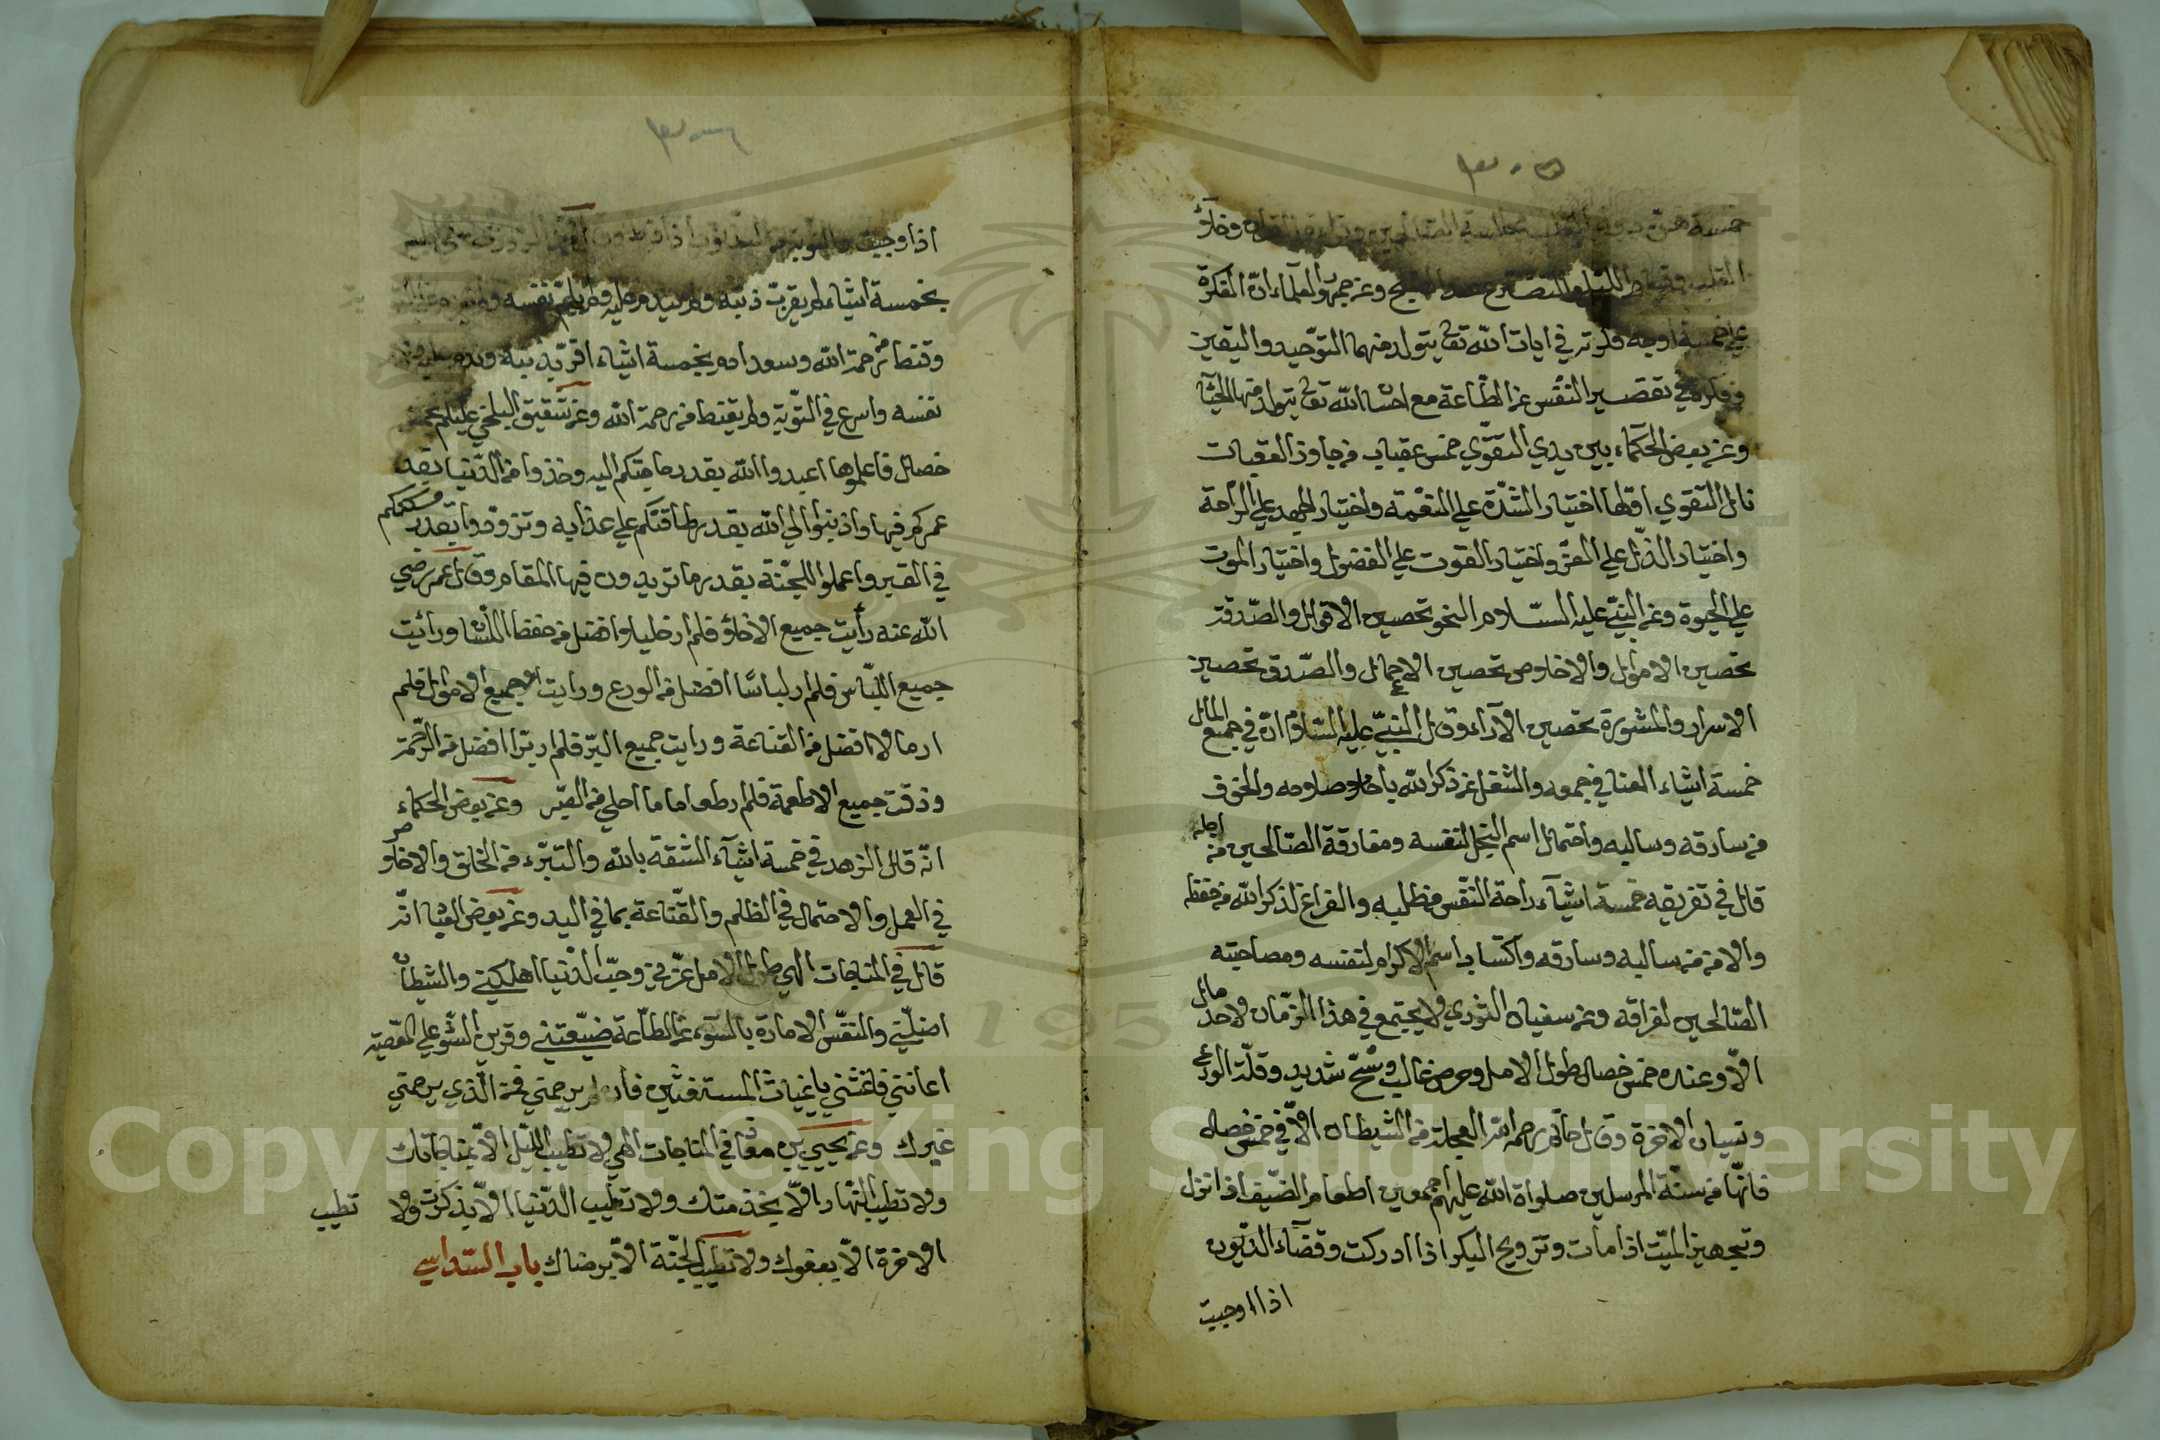 ٣٠٥
خمسة هن دواء القلب مجالسة الصالحين وقراءة القران وخلاؤ
البطن وقيام الليل والتضرع عند الصبح وعن جمهور العلماء ان الفكرة
على خمسة اوجه فكرة في ايات الله تع يتولد منها التوحيد واليقين
وفكرة في تقصير النفس عن الطاعة مع احسا الله تع يتولد منها الحيا
وعن بعض الحكماء بين يدي التقوي خمس عقبات من جاوز العقبات
نال التقوي اولها اختيار الشدة علي النعمة واختيار الجهد علي الراحة
واختيار الذل علي العز واختيار القوت علي الفضول واختيار الموت
علي الحيوة وعن النبي عليه السلام النجو تحصين الاقوال والصدقة
تحصين الاموال والاخلاص تحصين الاعمال والصدق تحصين
الاسرار والمشورة تحصين الآراء وقال النبي عليه السلام ان في جمع المال
خمسة اشياء العنا في جمعه والشغل عن ذكر الله باصلاحه والخوف
من سارقه وسالبه واحتمال اسم البخل لنفسه ومفارقة الصالحين من اجله
قال في تفريقه خمسة اشياء راحة النفس من طلبه والفراغ لذكر الله من حفظه
والامن من سالبه وسارقه واكتساب اسم الاكرام لنفسه ومصاحبته
الصالحين لفراقه وعن سفيان الثوري ولا يجتمع في هذا الزمان لاحد مال
الا وعنده خمس خصال طول الامل وحرص غالب وشح شديد وقلة الورع
ونسيان الاخرة وقال حاتم رحمه الله العجلة من الشيطان الا في خمس خصال
فانها من سنة المرسلين صلواة الله عليهم اجمعين اطعام الضيف اذا نزل
وتجهيز الميت اذا مات وتزويج البكر اذا ادركت وقضاء الديون
اذا اوجبت
٣٠٦
اذا وجبت والتوبة من الذنوب اذا
بخمسة اشياء لم يقر بذنبه ولم يندم عليه ولم يلم نفسه
وقنط من رحمة الله وسعد ادم بخمسة اشياء اقر بذنبه وندم عليه ولام
نفسه واسرع في التوبة ولم يقنط من رحمة الله وعن شقيق البلخي عليكم بخمس
خصال فاعملوها اعبدوا الله بقدر حاجتكم اليه وخذوا من الدنيا بقدر
عمركم فيها واذنبوا الي الله بقدر طاقتكم علي عذابه وتزودوا بقدر مسكنكم
في القبر واعملوا للجنة بقدر ما تريدون فيها المقام وقال عمر رضي
الله عنه رأيت جميع الاخلاؤ فلم ار خليلا افضل من حفظ اللسا ورأيت
جميع اللباس فلم ار لباسا افضل من الورع ورايت جميع الاموال فلم
ار مالا افضل من القناعة ورايت جميع البر فلم ار برا افضل من الرحمة
وذقت جميع الاطعمة فلم ار طعاما احلي من الصبر وعن بعض الحكماء
انه قال الزهد في خمسة اشياء الثقة بالله والتبرء من الخلق والاخلاص
في العمل والاحتمال في الظلم والقناعة بما في اليد وعن بعض العبا انه
قال في المناجات الهي طول الامل غرني وحب الدنيا اهلكني والشيطان
اضلني والنفس الامارة بالسوء عن الطاعة ضيعتني وقرين السوء علي المعصية
اعانني فاغثني يا غياث المستغثين فان لم يرحمني فمن الذي يرحمني
غيرك وعن يحيي بن معاذ في المناجات الهي لا تطيب الليل الا بمناجاتك
ولا تطيب النهار الا بخدمتك ولا تطيب الدنيا الا بذكرك ولا تطيب
الاخرة الا بعفوك ولا تطيب الجنة الا برضاك باب السداسي
Copyright © King Saud University